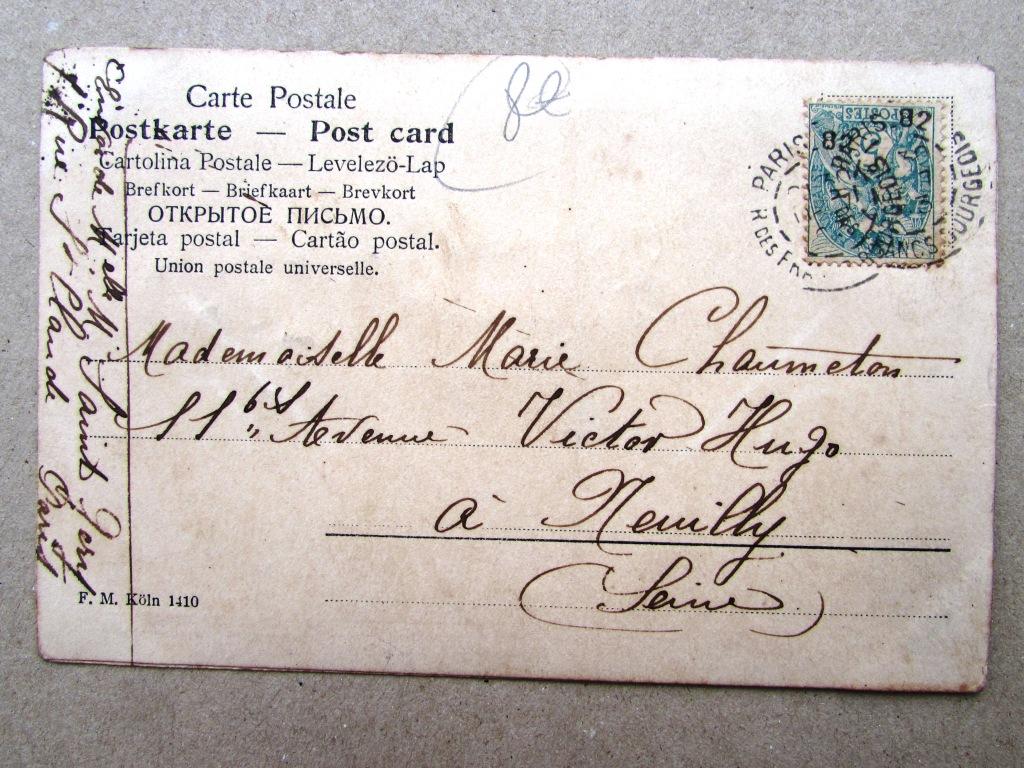 Carte Postale
Postkarte — Post card
Cartolina Postale — Levelezö-Lap
Brefkort — Briefkaart — Brevkort
ОТКРЫТОЕ ПИСЬМО.
Tarjeta postal — Cartão postal.
Union postale universelle.
8e
POSTES
82
PARIS
R DES FRANCS BOURGEOIS
Mademoiselle Marie Chaumeton
11 bis Avenue Victor Hugo
à Neuilly
(Seine)
de Melle M Saint
Rue St Claude Paris
F. M. Köln 1410